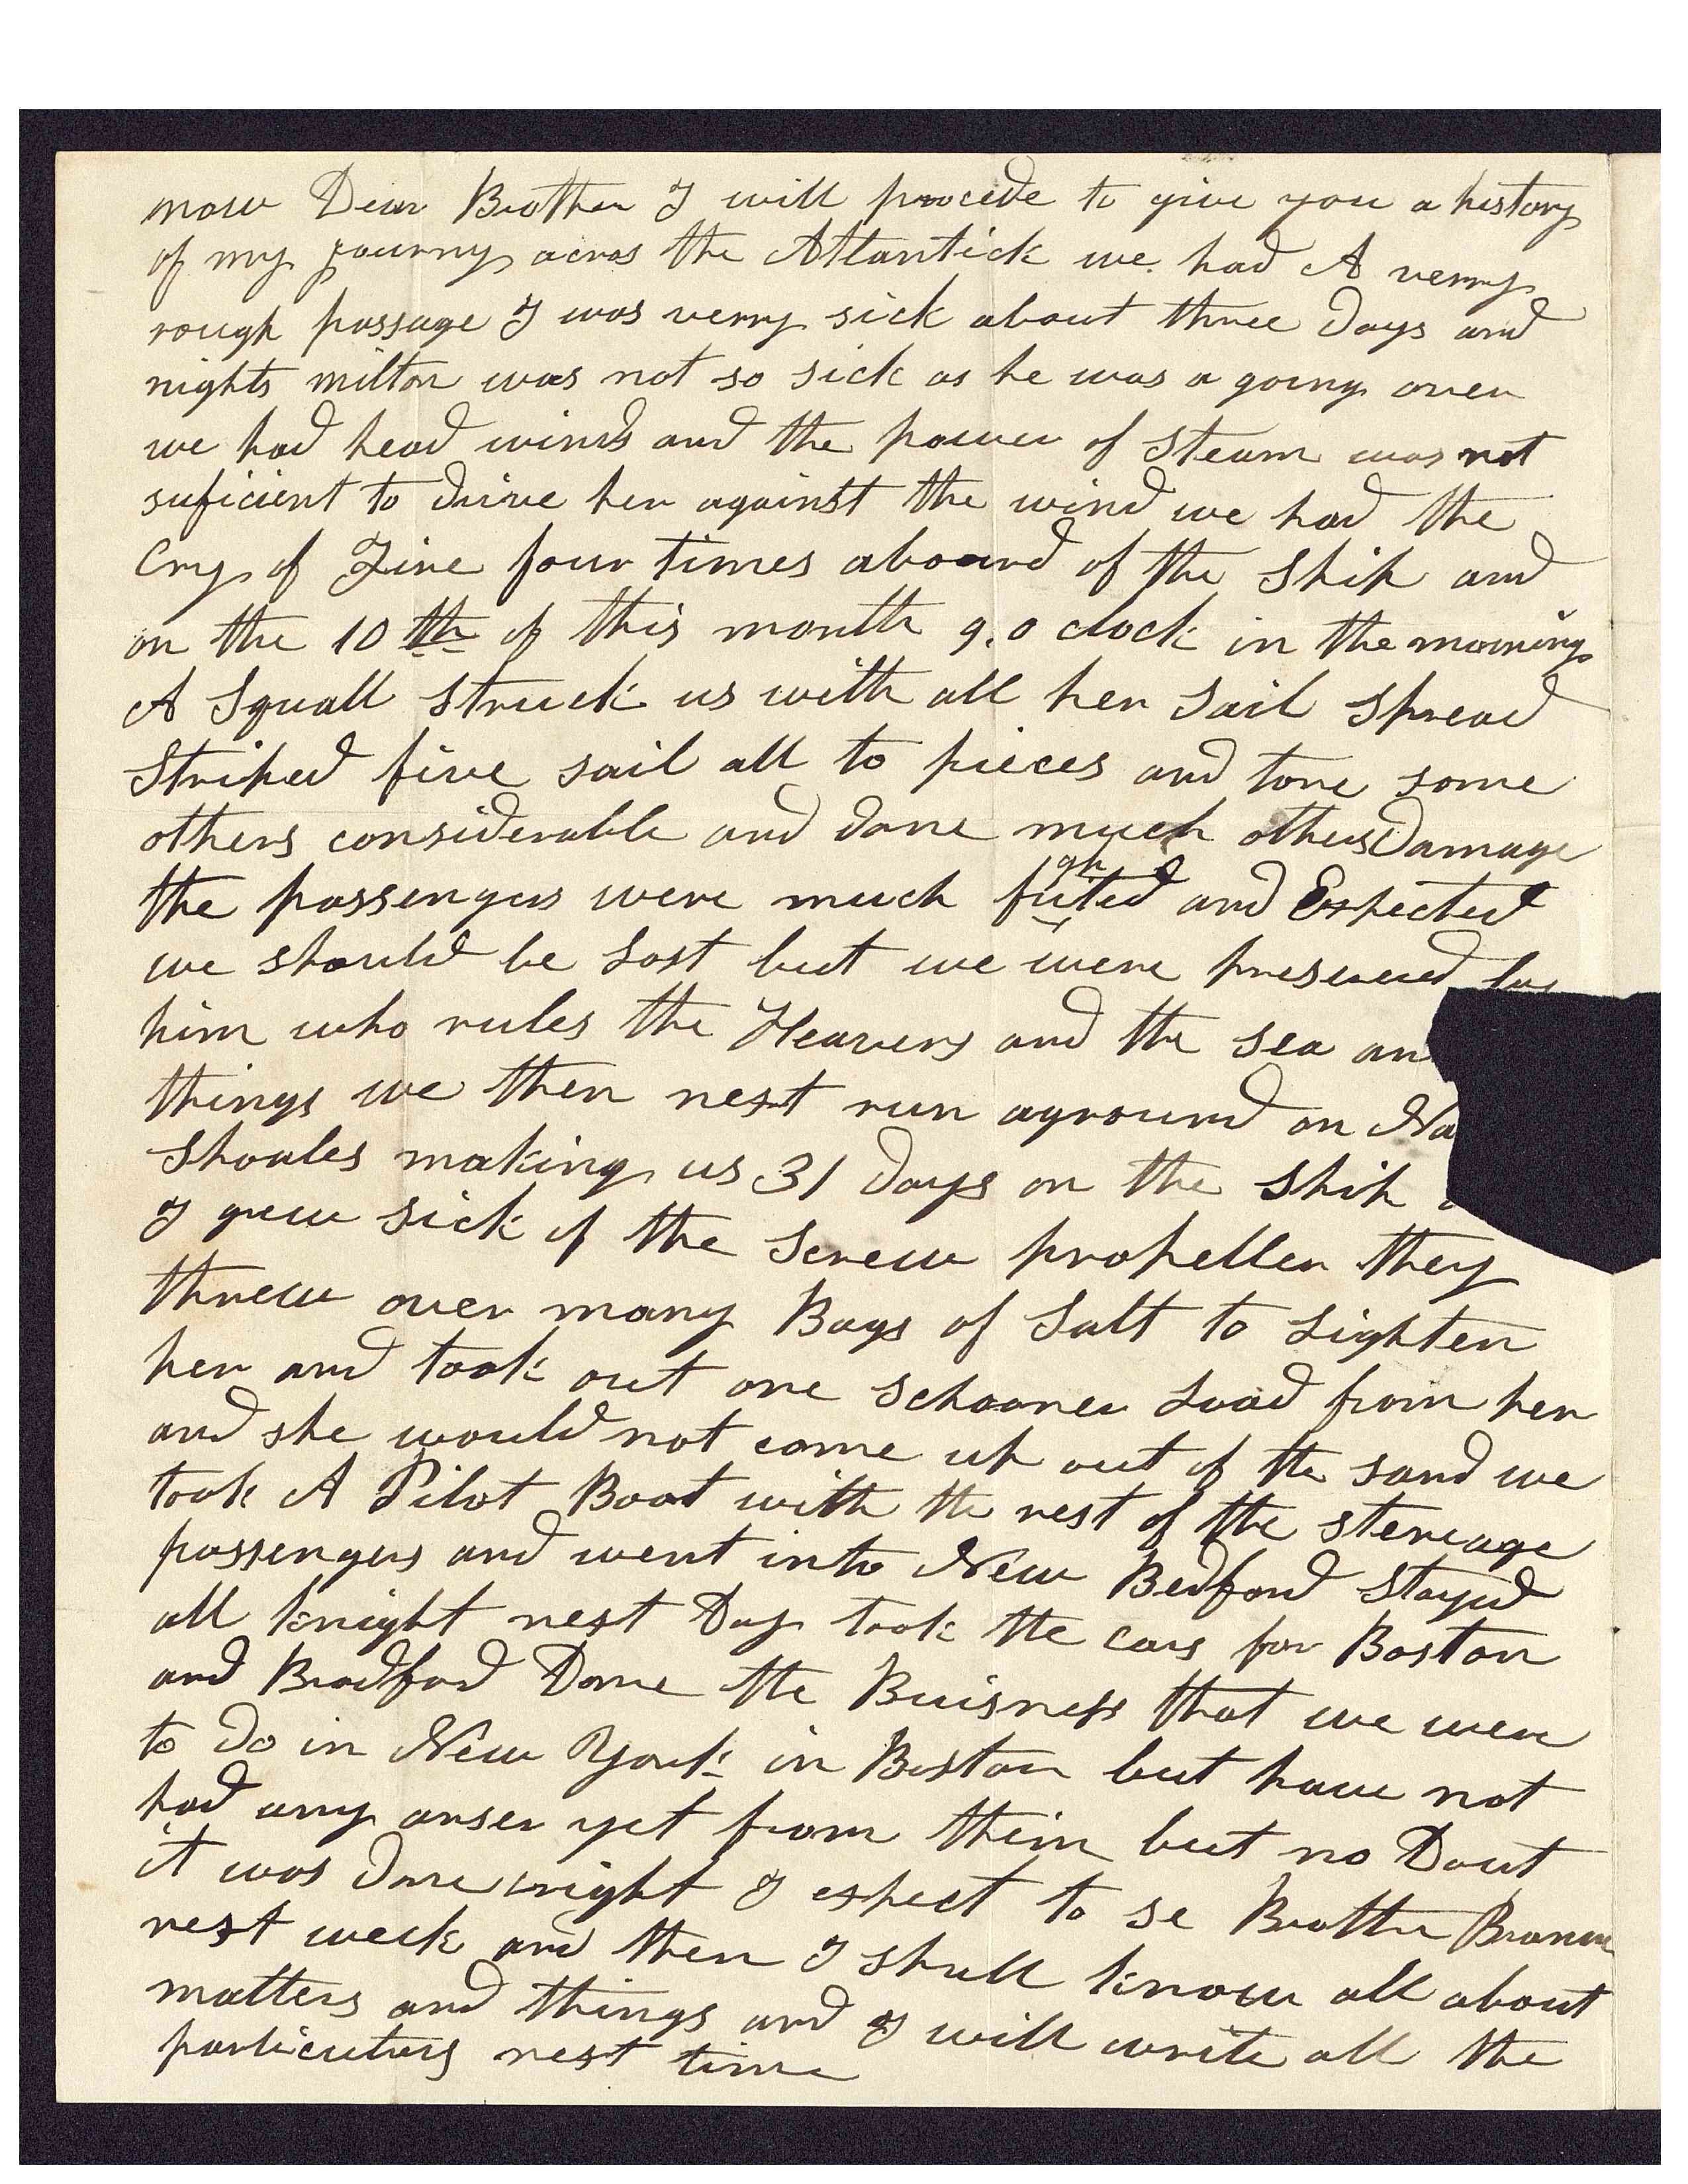 now Dear Brother I will procede to give you a history
of my journy acros the Atlantick we had A verry
rough passage I was verry sick about three Days and
nights milton was not so sick as he was a going over
we had head winds and the power of steam was not
suficient to drive her against the wind we had the
Cry of Fire four times aboard of the ship and
on the 10th of this month 9.o clock in the morning
A Squall struck us with all her sail spread
Striped five sail all to pieces and tore some
others considerable and done much other Damage
the passengers were much frighted and Expected
we should be Lost but we were preserved by
him who rules the Heavens and the sea an
things we then next run aground on Na
Shoales making us 31 days on the ship
I grew sick of the Screw propeller they
threw over many Bags of Salt to Lighten
her and took out one schooner Load from her
and she would not come up out of the sand we
took A Pilot Boat with the rest of the stereage
passengers and went into New Bedford stayed
all knight next Day took the cars for Boston
and Bradford Done the Buisness that we were
to do in New York in Boston but have not
had any anser yet from them but no Dout
it was done wright I expect to se Brother
next week and then I shall know all about
matters and things and I will write all the
particulars next time